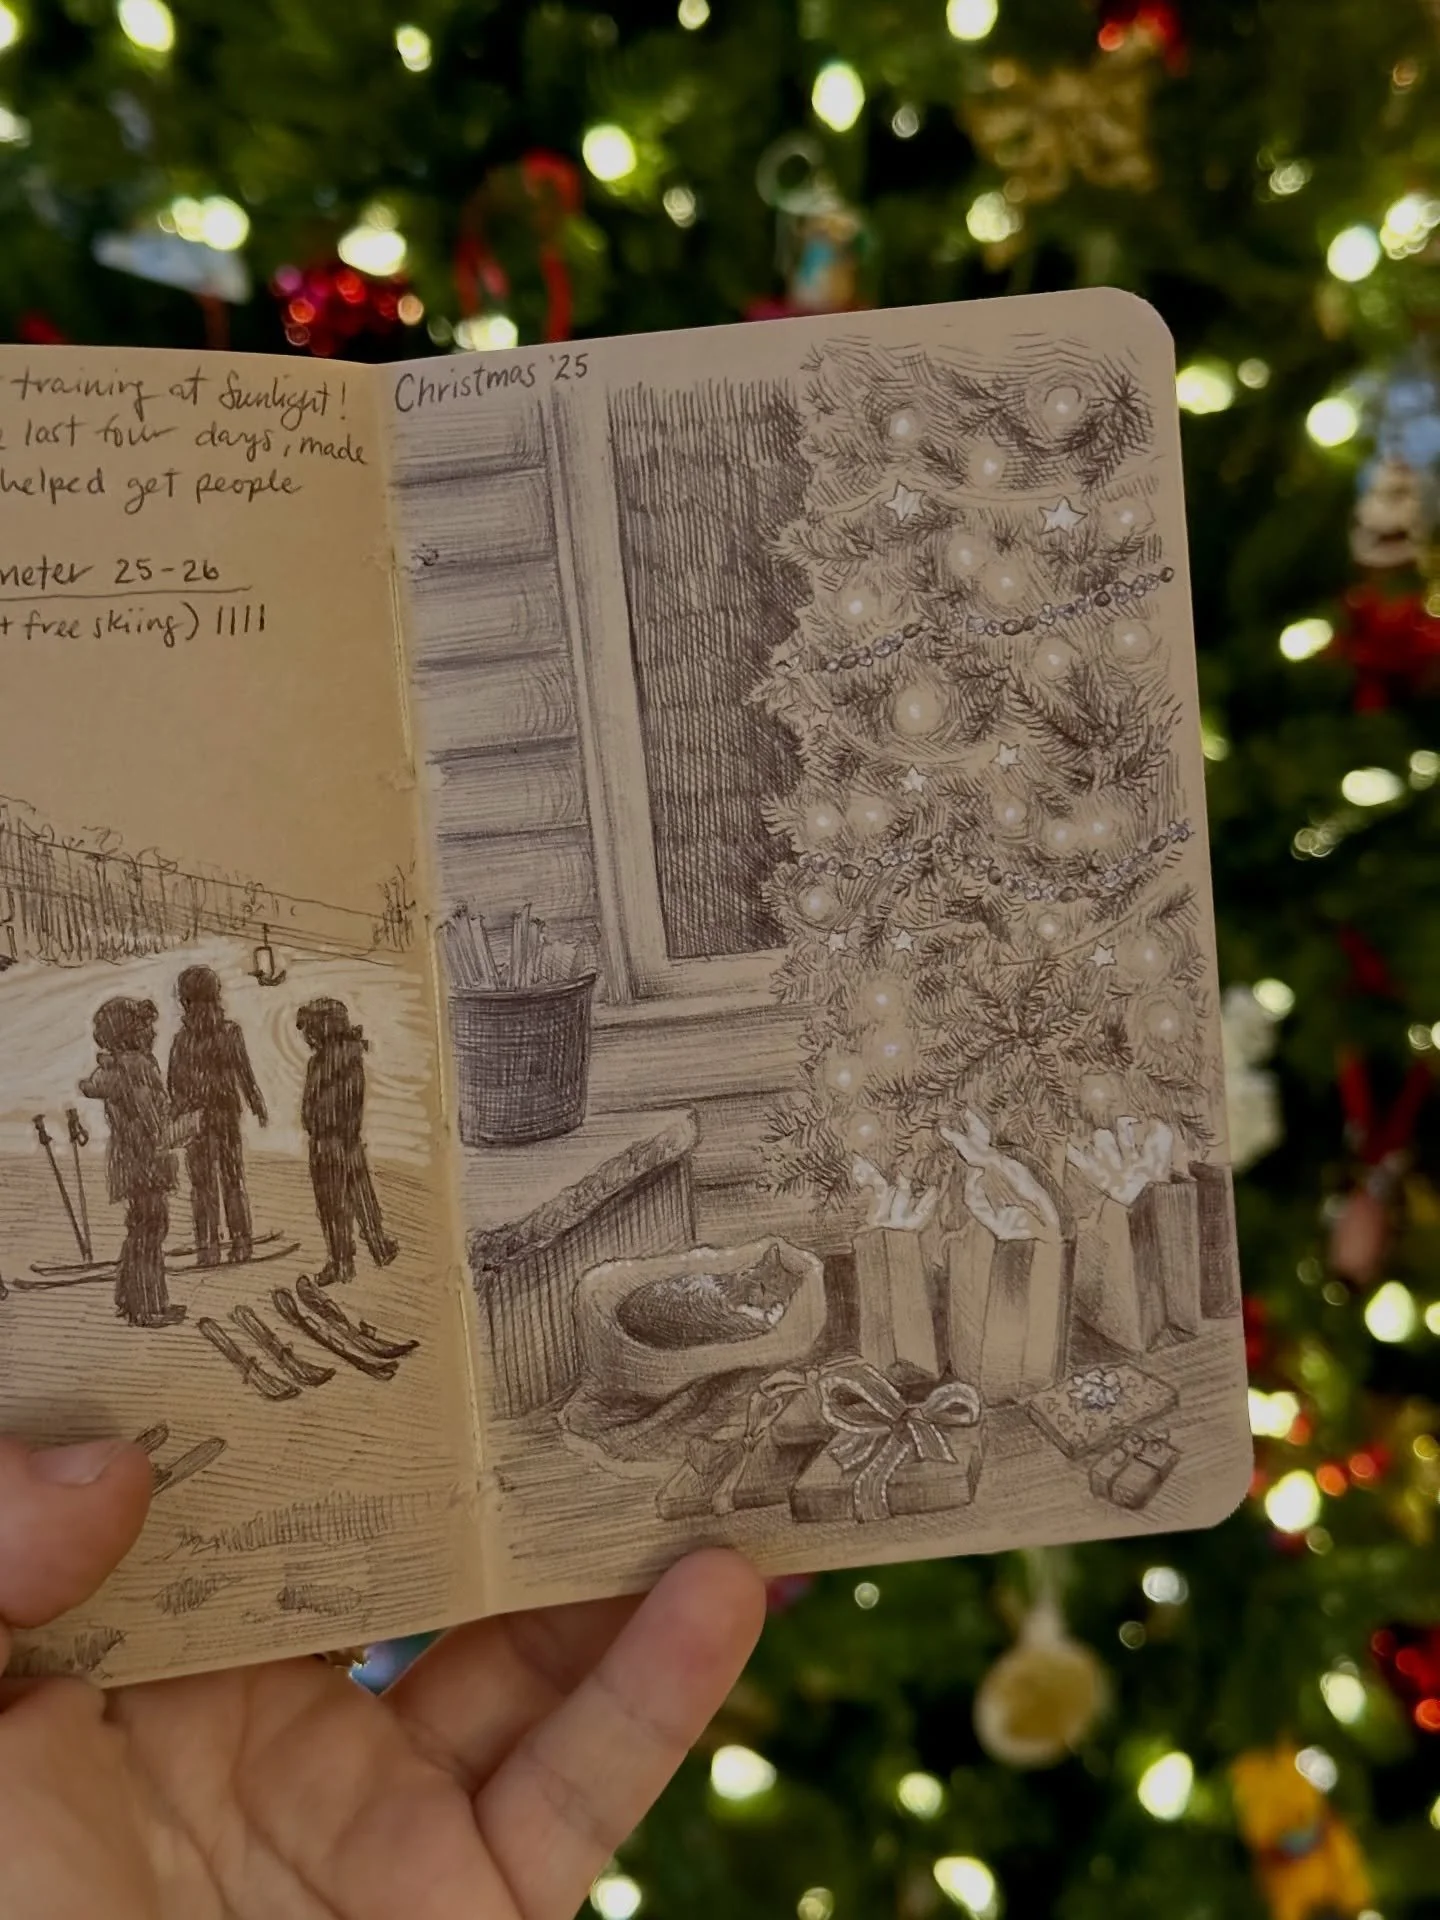 training at Sunlight!
last four days, made
helped get people
meter 25-26
+ free skiing) ||||
Christmas '25